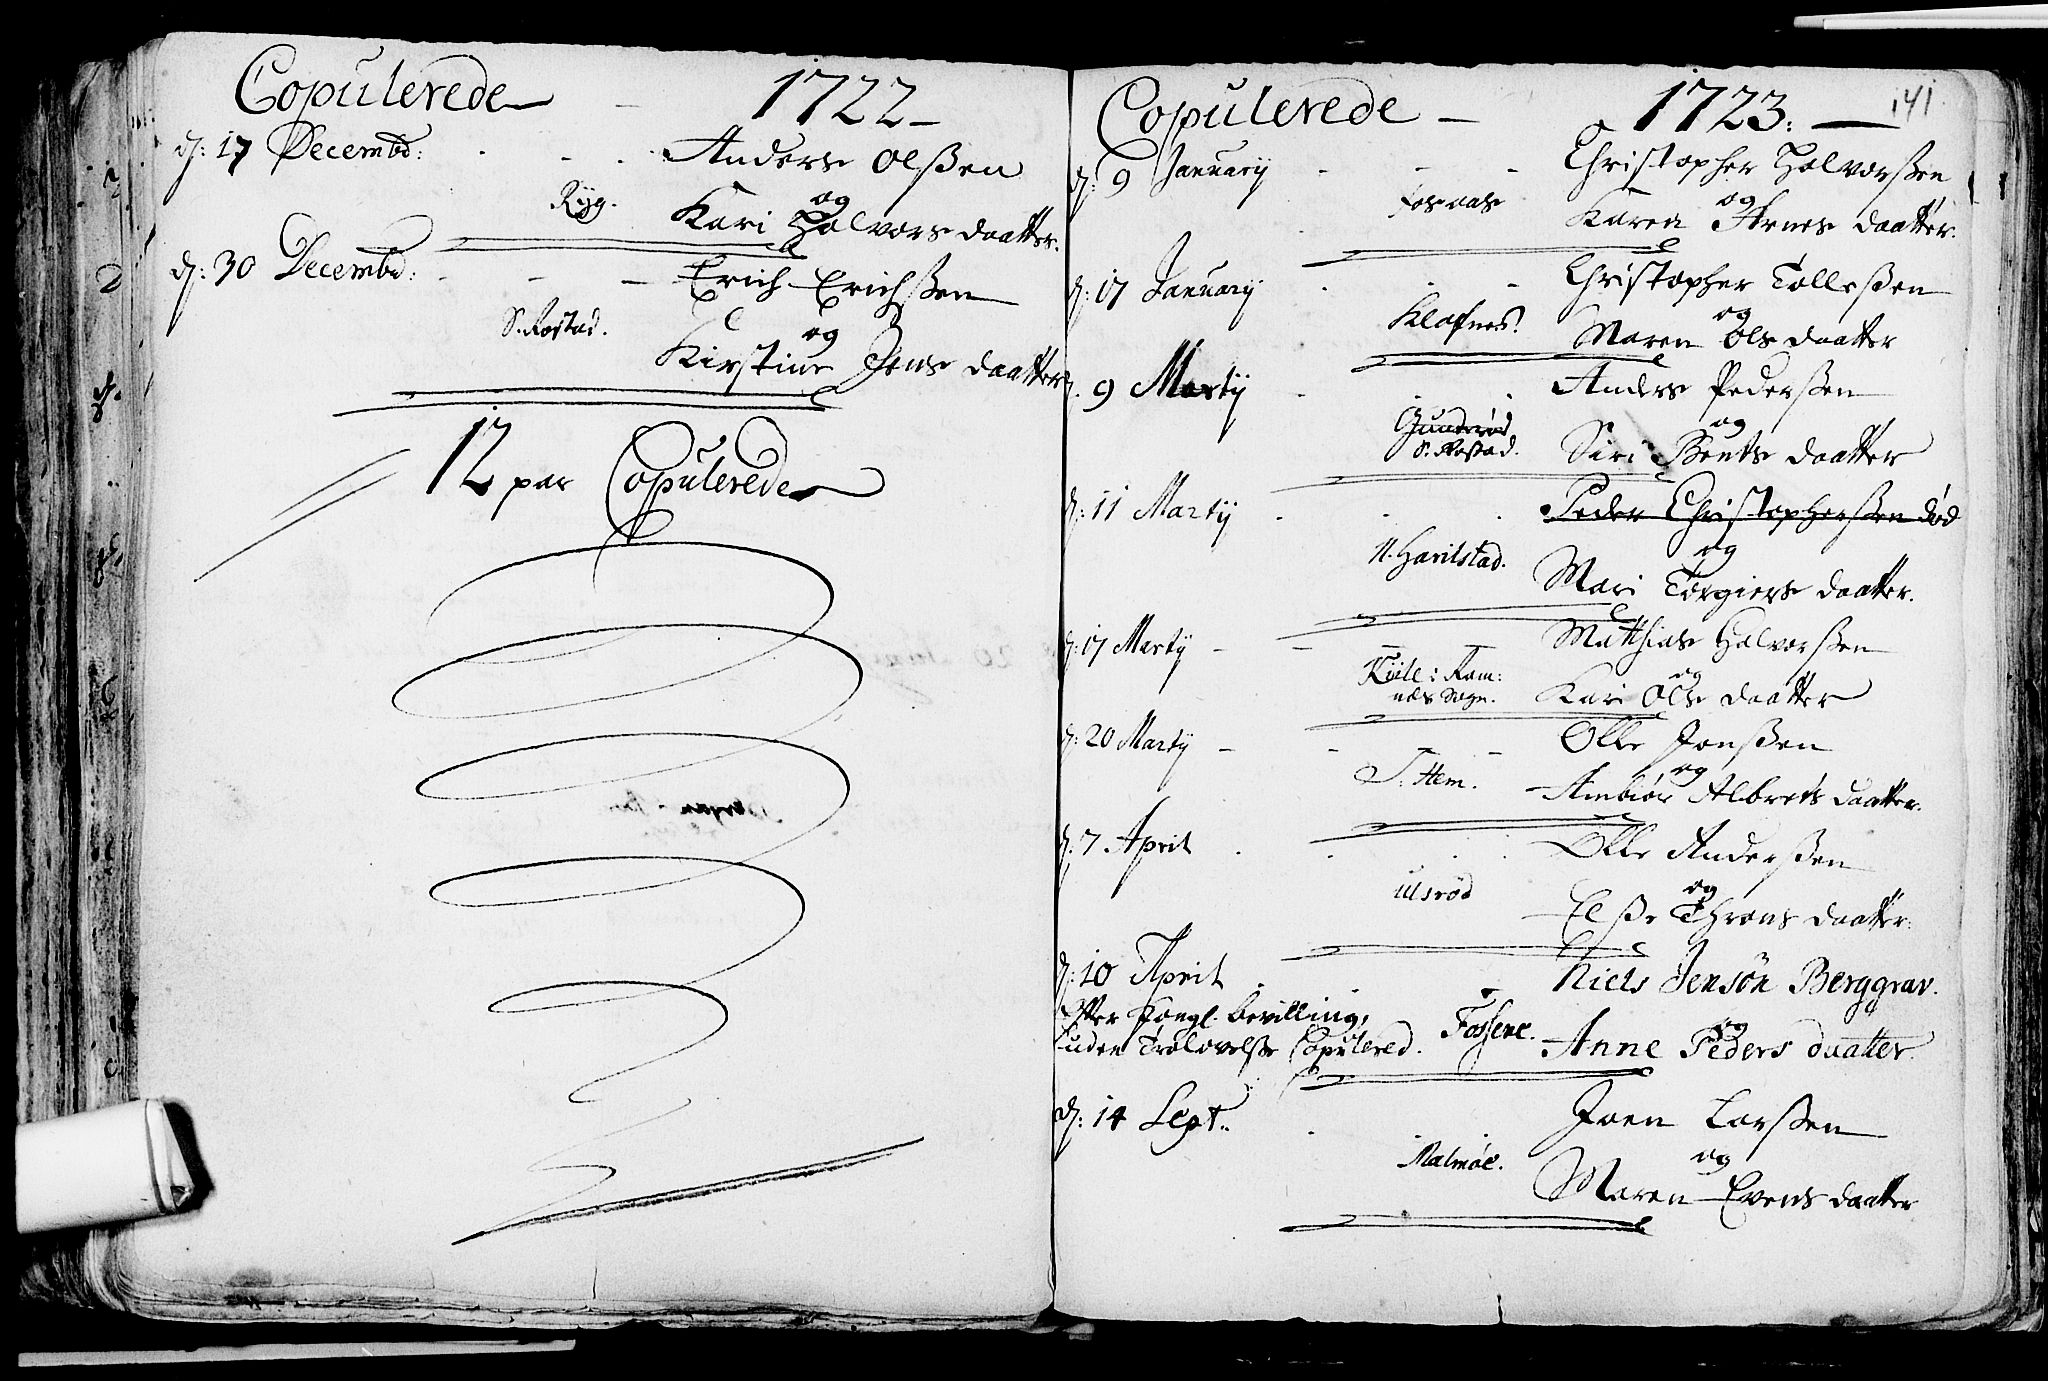 Copulerede – 1722 –
d: 17 Decembd: Anders Olßen
og
Ryg. Kari Halvors daatter.
d: 30 Decembd: Erich Erichßen
S. Rostad. og
Kirstine Jens daatter
12 par Copulerede
141
Copulerede – 1723: –
d: 9 January Christopher Halvorßen
og
Karen Arnes daatter.
d: 17 January Christopher Tolleßen
og
Klofnes. Maren Ols daatter
d. 9 Martij Anders Pederßen
Gunderød og
S. Rostad. Siri Bents daatter
d: 11 Martij Peder Christopherßen død
og
N. Harilstad.
Mari Torgiers daatter.
d: 17 Martij Matthias Halvorßen
Kiile i Ram: og
næs Sogn. Kari Ols daatter
d: 20 Martij Olle Jonßen
og
S. Hem. Ambiør Albrets daatter.
d. 7 April Olle Anderßen
ulsrød og
Elße Throns daatter.
d: 10 April Niels Jensøn Berggrav.
Efter Kongl. bevilling, og
uden Trolovelße Copulered. Fossene. Anne Peders daatter.
d: 14 Sept. Joen Larßen
Malmøe. og
Maren Evens daatter